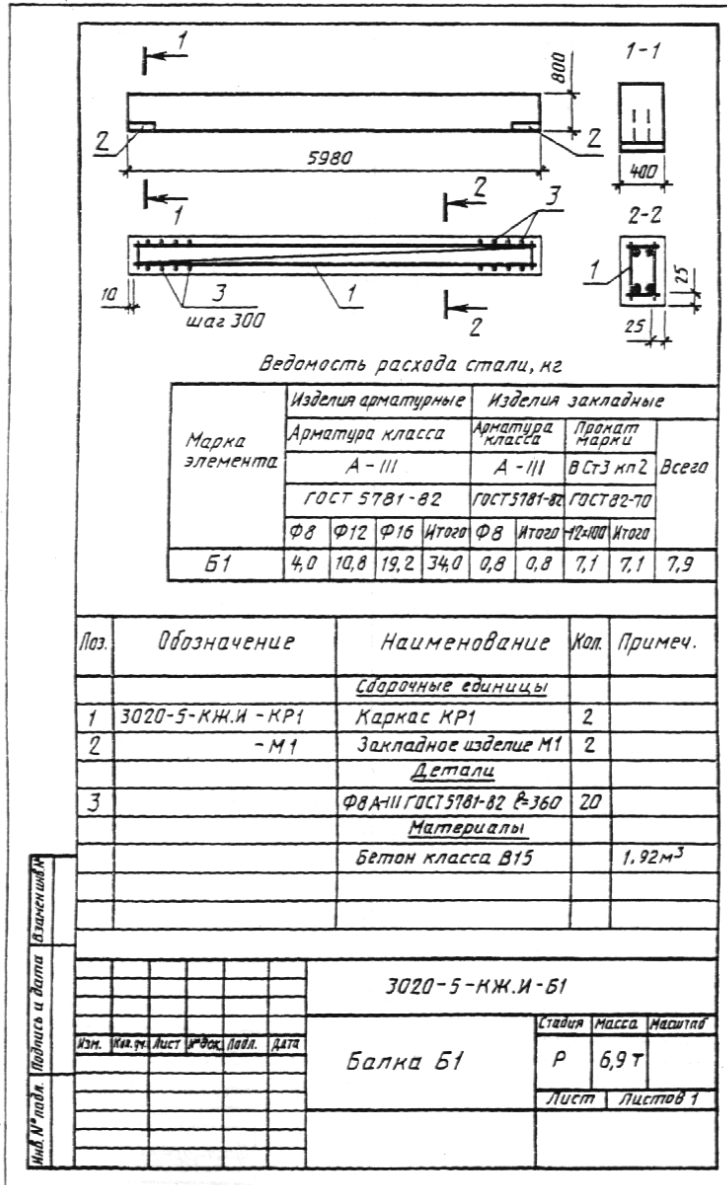 1
1-1
800
2
2
5980
400
1
2
3
2-2
1
25
10
3
1
шаг 300
2
25
Ведомость расхода стали, кг
Марка элемента
Изделия арматурные
Изделия закладные
Арматура класса
Арматура класса
Прокат марки
Всего
А-III
А-III
ВСт3 кп2
ГОСТ 5781-82
ГОСТ 5781-82
ГОСТ 82-70
Ф8 Ф12 Ф16 Итого Ф8 Итого -12×100 Итого
Б1 4,0 10,8 19,2 34,0 0,8 0,8 7,1 7,1 7,9
Поз. Обозначение Наименование Кол. Примеч.
Сборочные единицы
1 3020-5-КЖ.И-КР1 Каркас КР1 2
2 -М1 Закладное изделие М1 2
Детали
3 Ф8А-III ГОСТ 5781-82 ℓ=360 20
Материалы
Бетон класса В15 1.92м³
Взамен инв.№
Подпись и дата
Инв. № подл.
3020-5-КЖ.И-Б1
Изм. Кол.уч. Лист №док. Подп. Дата
Балка Б1
Стадия Масса Масштаб
Р 6,9 т
Лист Листов 1